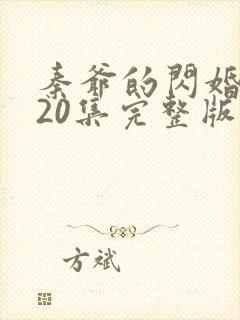 秦爺的閃婚
20集完整版
方斌